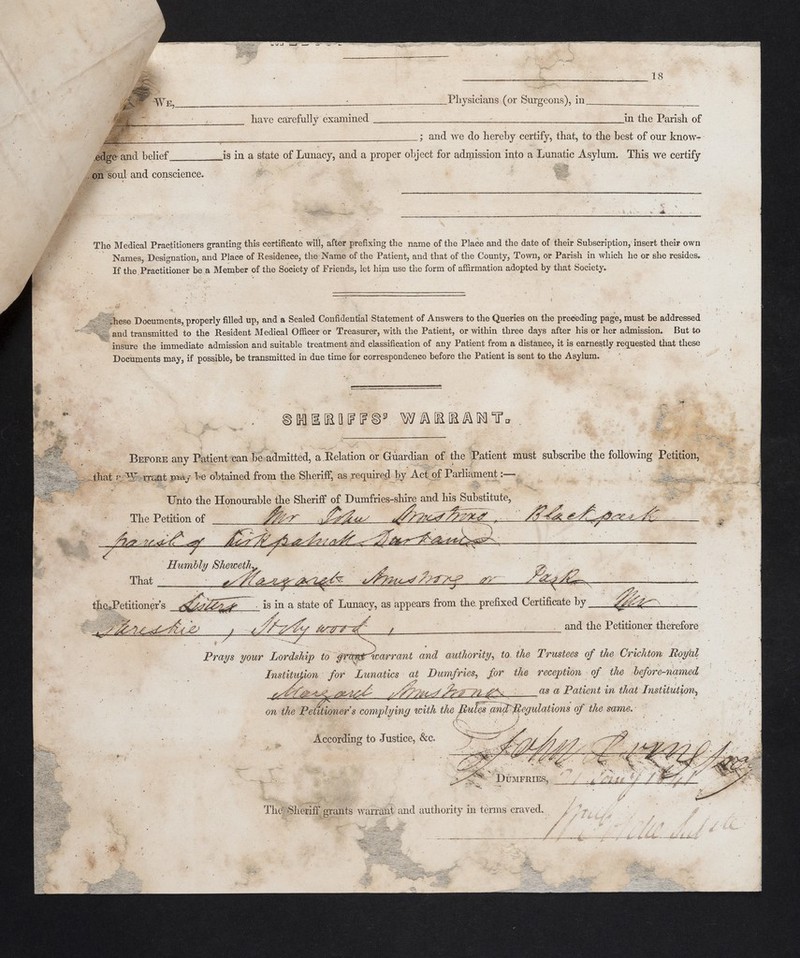 18
WE, Physicians (or Surgeons), in
have carefully examined in the Parish of
; and we do hereby certify, that, to the best of our know-
edge and belief is in a state of Lunacy, and a proper object for admission into a Lunatic Asylum. This we certify
on soul and conscience.
The Medical Practitioners granting this certificate will, after prefixing the name of the Place and the date of their Subscription, insert their own
Names, Designation, and Place of Residence, the Name of the Patient, and that of the County, Town, or Parish in which he or she resides.
If the Practitioner be a Member of the Society of Friends, let him use the form of affirmation adopted by that Society.
hese Documents, properly filled up, and a Sealed Confidential Statement of Answers to the Queries on the preceding page, must be addressed
and transmitted to the Resident Medical Officer or Treasurer, with the Patient, or within three days after his or her admission. But to
insure the immediate admission and suitable treatment and classification of any Patient from a distance, it is earnestly requested that these
Documents may, if possible, be transmitted in due time for correspondence before the Patient is sent to the Asylum.
SHERIFFS' WARRANT.
BEFORE any Patient can be admitted, a Relation or Guardian of the Patient must subscribe the following Petition,
that a Warrant may be obtained from the Sheriff, as required by Act of Parliament :—
Unto the Honourable the Sheriff of Dumfries-shire and his Substitute,
The Petition of Mr John Armstrong. Blackpark
parish of Kirkpatrick Durham
Humbly Sheweth,
That Margaret Armstrong or Park
the Petitioner's Sister is in a state of Lunacy, as appears from the prefixed Certificate by Mr
, Holywood, and the Petitioner therefore
Prays your Lordship to grant warrant and authority, to the Trustees of the Crichton Royal
Institution for Lunatics at Dumfries, for the reception of the before-named
Margaret Armstrong as a Patient in that Institution,
on the Petitioner's complying with the Rules and Regulations of the same.
According to Justice, &c.
John Armstrong
DUMFRIES,
The Sheriff grants warrant and authority in terms craved.